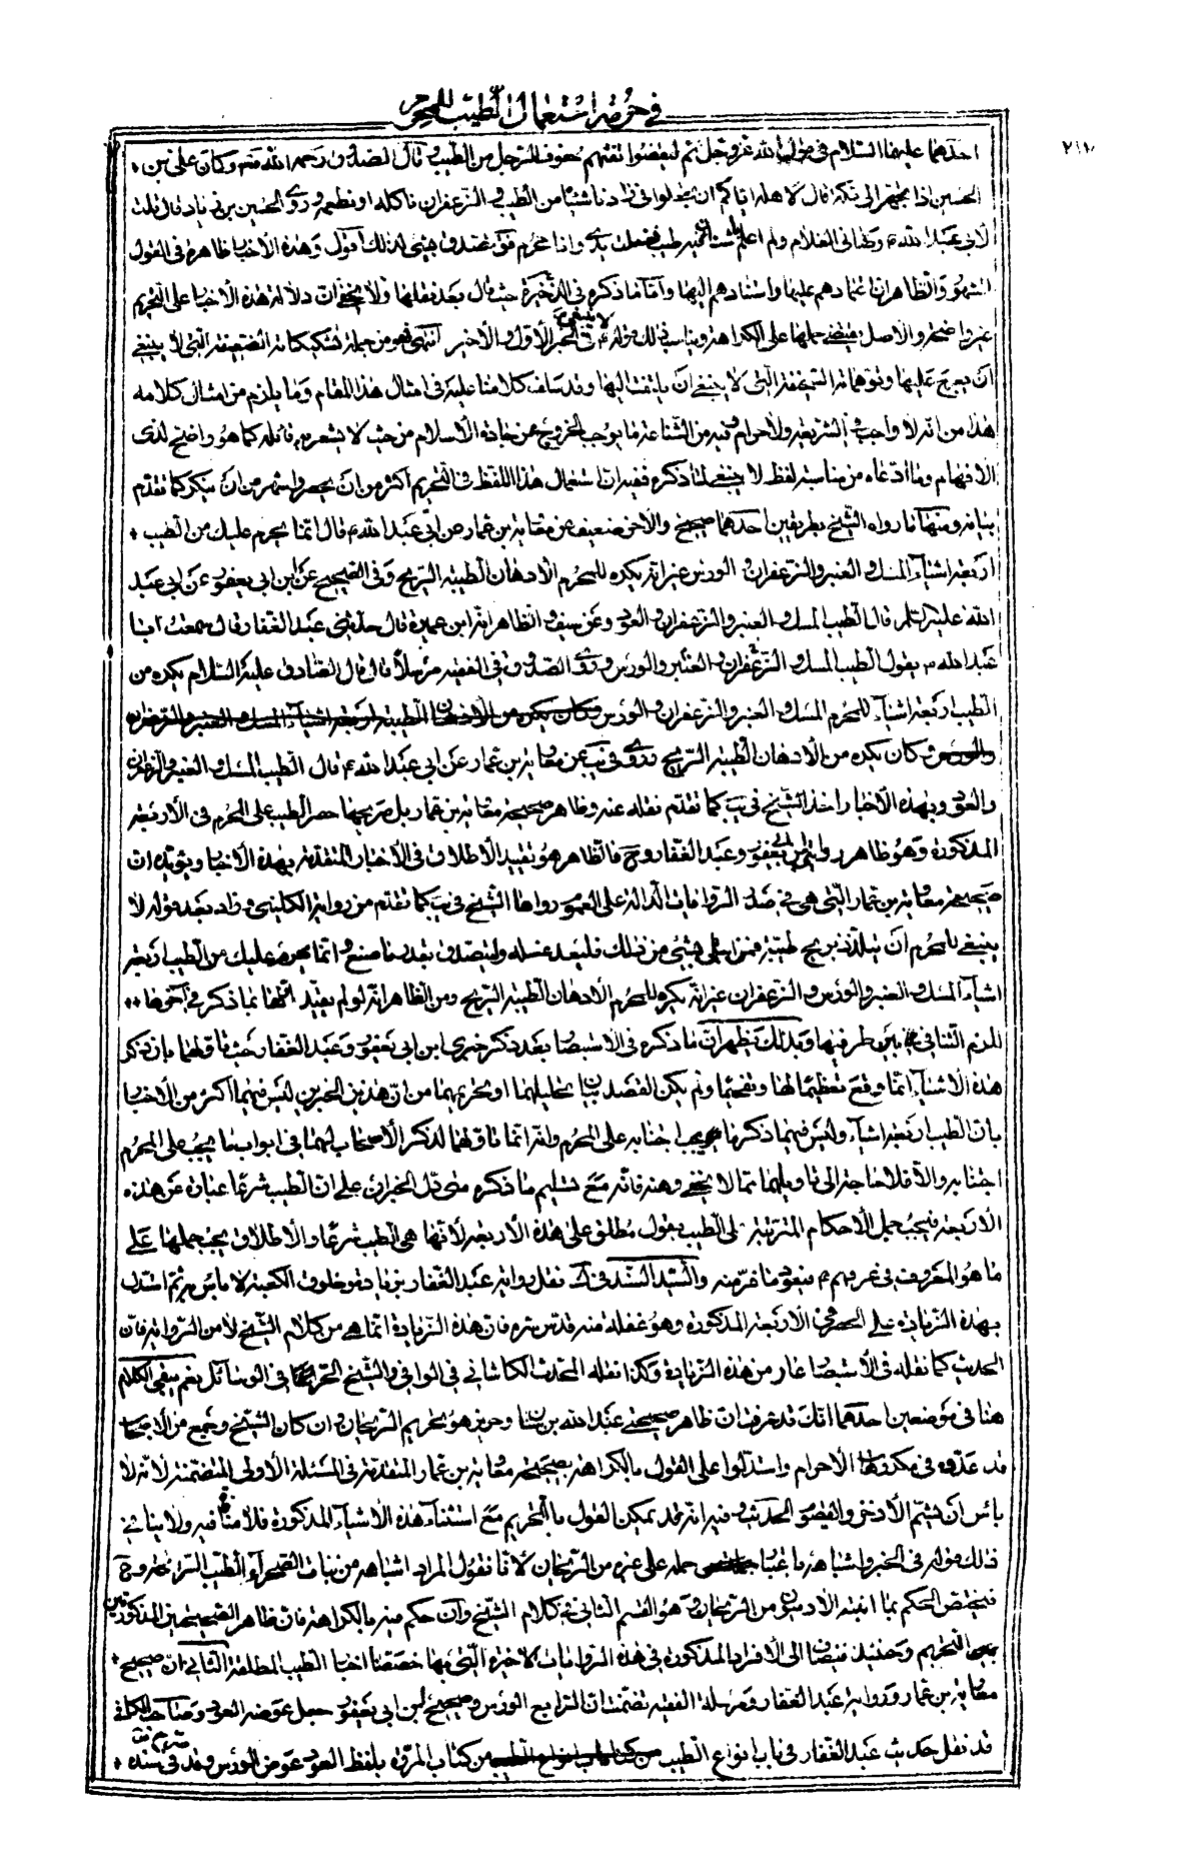 في حرمة استعمال الطيب للمحرم
٢١٠
احدهما عليهما السلام في قول الله عز وجل ثم ليقضوا تفثهم حفوف الرجل من الطيب و قال الصادق رحمه الله فيه وكان علي بن
الحسين اذا تجهز الى مكة قال لاهله اياكم ان تجعلوا في زادنا شيئا من الطيب و الزعفران ناكله او نطعمه وروى الحسين بن زياد قال قلت
لابي عبد الله ع وضأني الغلام ولم اعلم باشنان فيه طيب فغسلت يدي وانا محرم فقال تصدق بشئ لذلك اقول وهذه الاخبار ظاهرة في القول
المشهور والظاهر ان اعتمادهم عليها واستنادهم اليها واما ما ذكره في الذخيرة حيث قال بعد نقلها ولا يخفى ان دلالة هذه الاخبار على التحريم
غير واضحة والاصل يقتضي حملها على الكراهة ويناسب ذلك قوله ع لا ينبغي في الخبر الاول والاخير انتهى فهو من جملة تشكيكاته الضعيفة التي لا ينبغي
ان يعرج عليها وتوهماته السخيفة التي لا ينبغي ان يلتفت اليها وقد سلف كلامنا عليه في امثال هذا المقام وما يلزم من امثال كلامه
هذا من انه لا واجب في الشريعة ولا حرام وفيه من الشناعة ما يوجب الخروج عن جادة الاسلام من حيث لا يشعر به قائله كما هو واضح لذوى
الافهام وما ادعاه من مناسبة لفظ لا ينبغي لما ذكره ففيه ان استعمال هذا اللفظ في التحريم اكثر من ان يحصر واشهر من ان ينكر كما تقدم
بيانه ومنها ما رواه الشيخ بطريقين احدهما صحيح والآخر ضعيف عن معاوية بن عمار عن ابي عبد الله ع قال انما يحرم عليك من الطيب
اربعة اشياء المسك و العنبر والزعفران و الورس غير انه يكره للمحرم الادهان الطيبة الريح وفي الصحيح عن ابن ابي يعفور عن ابي عبد
الله عليه السلم قال الطيب المسك و العنبر والزعفران و العود وعن سيف و الظاهر انه ابن عميرة قال حدثني عبد الغفار قال سمعت ابا
عبد الله ع يقول الطيب المسك و الزعفران و العنبر والورس وروى الصدوق في الفقيه مرسلا قال قال الصادق عليه السلام يكره من
الطيب اربعة اشياء للمحرم المسك و العنبر والزعفران و الورس
وكان يكره من الادهان الطيبة الريح وروى في يب عن معاوية بن عمار عن ابي عبد الله ع قال الطيب المسك و العنبر والزعفران
والعود وبهذه الاخبار اخذ الشيخ في يب كما تقدم نقله عنه وظاهر صحيحة معاوية بن عمار بل صريحها حصر الطيب على المحرم في الاربعة
المذكورة وهو ظاهر روايتي ابن ابي يعفور وعبد الغفار وح فالظاهر هو تقييد الاطلاق في الاخبار المتقدمة بهذه الاخبار ويؤيده ان
صحيحة معاوية بن عمار التي هي في صدر الروايات الدالة على العموم رواها الشيخ في يب كما تقدم من رواية الكليني وزاد بعد قوله لا
ينبغي للمحرم ان يتلذذ بريح طيبة فمن ابتلي بشئ من ذلك فليعد غسله وليتصدق بقدر ما صنع و انما يحرم عليك من الطيب اربعة
اشياء المسك و العنبر والورس و الزعفران غير انه يكره للمحرم الادهان الطيبة الريح ومن الظاهر انه لو لم يقيد اولها بما ذكر في آخرها
للزم التنافي بين طرفيها وبذلك يظهر ان ما ذكره في الاستبصار بعد ذكر خبري ابن ابي يعفور وعبد الغفار حيث تاولهما بان ذكر
هذه الاشياء انما وقع تعظيما لها وتفخيما ولم يكن القصد بيان تحليلهما او تحريمهما من ان هذين الخبرين ليس فيهما اكثر من الاخبار
بان الطيب اربعة اشياء وليس فيهما ذكر ما يجب اجتنابه على المحرم وانه انما تاولهما لذكر الاصحاب لهما في ابواب ما يجب على المحرم
اجتنابه والا فلا حاجة الى تاويلهما مما لا يخفى وهنه فانه مع تسليم ما ذكره متى دل الخبران على ان الطيب شرعا عبارة عن هذه
الاربعة فيجب حمل الاحكام المترتبة على الطيب بقول مطلق على هذه الاربعة لانها هي الطيب شرعا والاطلاق يجب حملها على
ما هو المعروف في عرفهم ع فيعود ما فر منه والسيد السند في ك نقل رواية عبد الغفار بزيادة وخلوق الكعبة لا باس به ثم استدل
بهذه الزيادة على الحصر في الاربعة المذكورة وهو غفلة منه قدس سره فان هذه الزيادة انما هي من كلام الشيخ لا من الرواية فان
الحديث كما نقله في الاستبصار عار من هذه الزيادة وكذا نقله المحدث الكاشاني في الوافي والشيخ الحر في الوسائل نعم يبقى الكلام
هنا في موضعين احدهما انك قد عرفت ان ظاهر صحيحتي عبد الله بن سنان وحريز هو تحريم الريحان و ان كان الشيخ وجمع من الاصحاب
قد عدوه في مكروهات الاحرام واستدلوا على القول بالكراهة بصحيحة معاوية بن عمار المتقدمة في المسئلة الاولى المتضمنة لانه لا
باس ان تشم الاذخر والقيصوم الحديث و فيه انه قد يمكن القول بالتحريم مع استثناء هذه الاشياء المذكورة فلا منافاة فيه ولا ينافي
ذلك قوله في الخبر واشباهه حمله على غيره من الريحان لانا نقول المراد اشباهه من نبات الصحراء و الطيب الرائحة وح
فيختص الحكم بما انبته الادميون من الريحان و هو القسم الثاني في كلام الشيخ وان حكم فيه بالكراهة فان ظاهر الصحيحتين المذكورتين
التحريم وحينئذ فيضاف الى الافراد المذكورة في هذه الروايات الاخيرة التي بها خصصنا اخبار الطيب المطلقة الثاني ان صحيح
معاوية بن عمار ورواية عبد الغفار ومرسلة الفقيه تضمنت ان الرابع الورس وصحيح ابن ابي يعفور جعل عوضه العود وصاحب الكافي
قد نقل حديث عبد الغفار في باب انواع الطيب من كتاب المروة بلفظ العود عوض الورس وقد في سنده